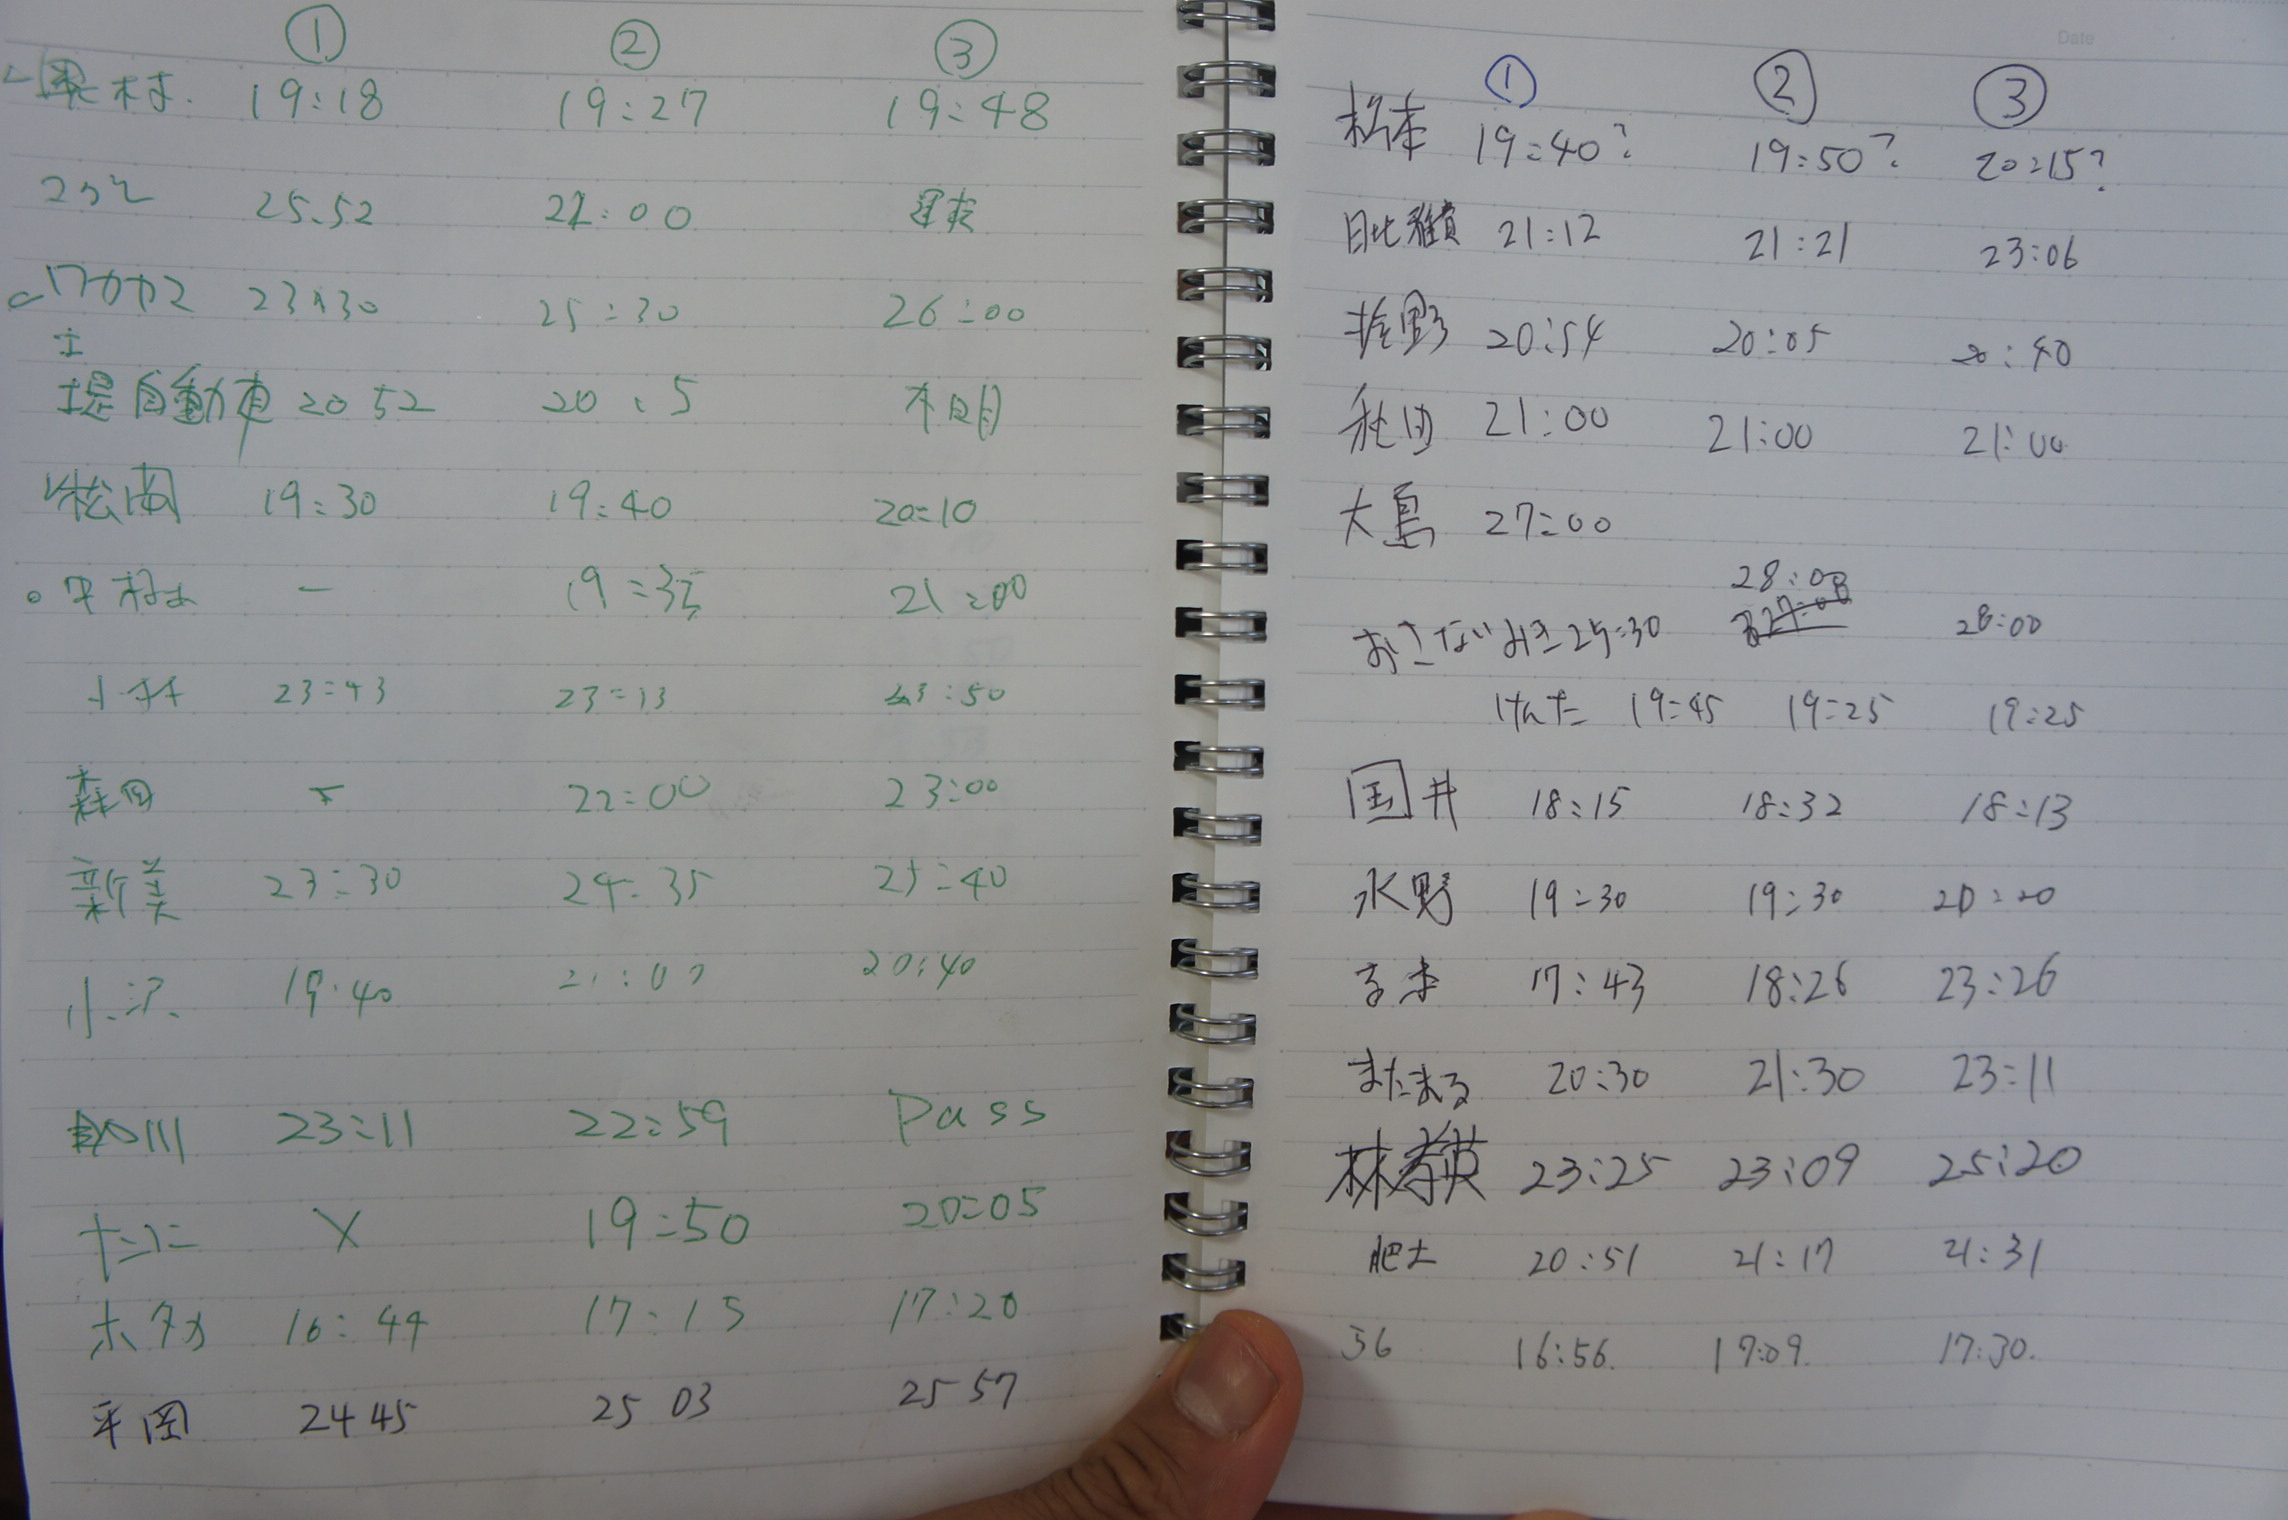 ① ② ③
村. 19:18 19:27 19:48
25.52 21:00
ワカカマ 23:30 25:30 26:00
堤自動車 20 52 20 : 5 不明
松岡 19:30 19:40 20:10
19:35 21:00
小林 23:43 23:13 23:50
森田 22:00 23:00
新美 23:30 24:35 25:40
小沢 19:40 20:40
川 23:11 22:59 Pass
X 19:50 20:05
ホタカ 16:44 17:15 17:20
平岡 24 45 25 03 25 57
Date
① ② ③
松本 19:40? 19:50? 20:15?
日比雅貴 21:12 21:21 23:06
20:54 20:05 20:40
秋田 21:00 21:00 21:00
大島 27:00
28:00
おさないみき 25:30 28:00
けんた 19:45 19:25 19:25
国井 18:15 18:32 18:13
水野 19:30 19:30 20:20
17:43 18:26 23:26
またまる 20:30 21:30 23:11
林孝英 23:25 23:09 25:20
肥土 20:51 21:17 21:31
36 16:56. 17:09. 17:30.